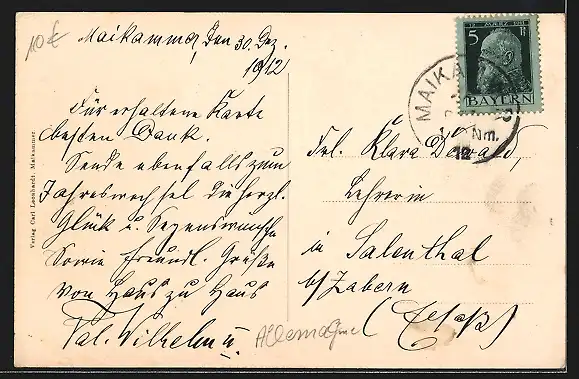 10€
Maikammer, den 30. Dez.
1912
Für erhaltene Karte
besten Dank.
Sende ebenfalls zum
Jahreswechsel die herzl.
Glück u. Segenswünsche
Sowie freundl. Grüße
von Haus zu Haus
Val. Wilhelm
Allemagne
Verlag Carl Leonhardt, Maikammer
12. MÄRZ 1911
5
BAYERN
MAIKA
Nm.
12
Frl. Klara
Lehrerin
in Salenthal
b/Zabern
(Elsaß)